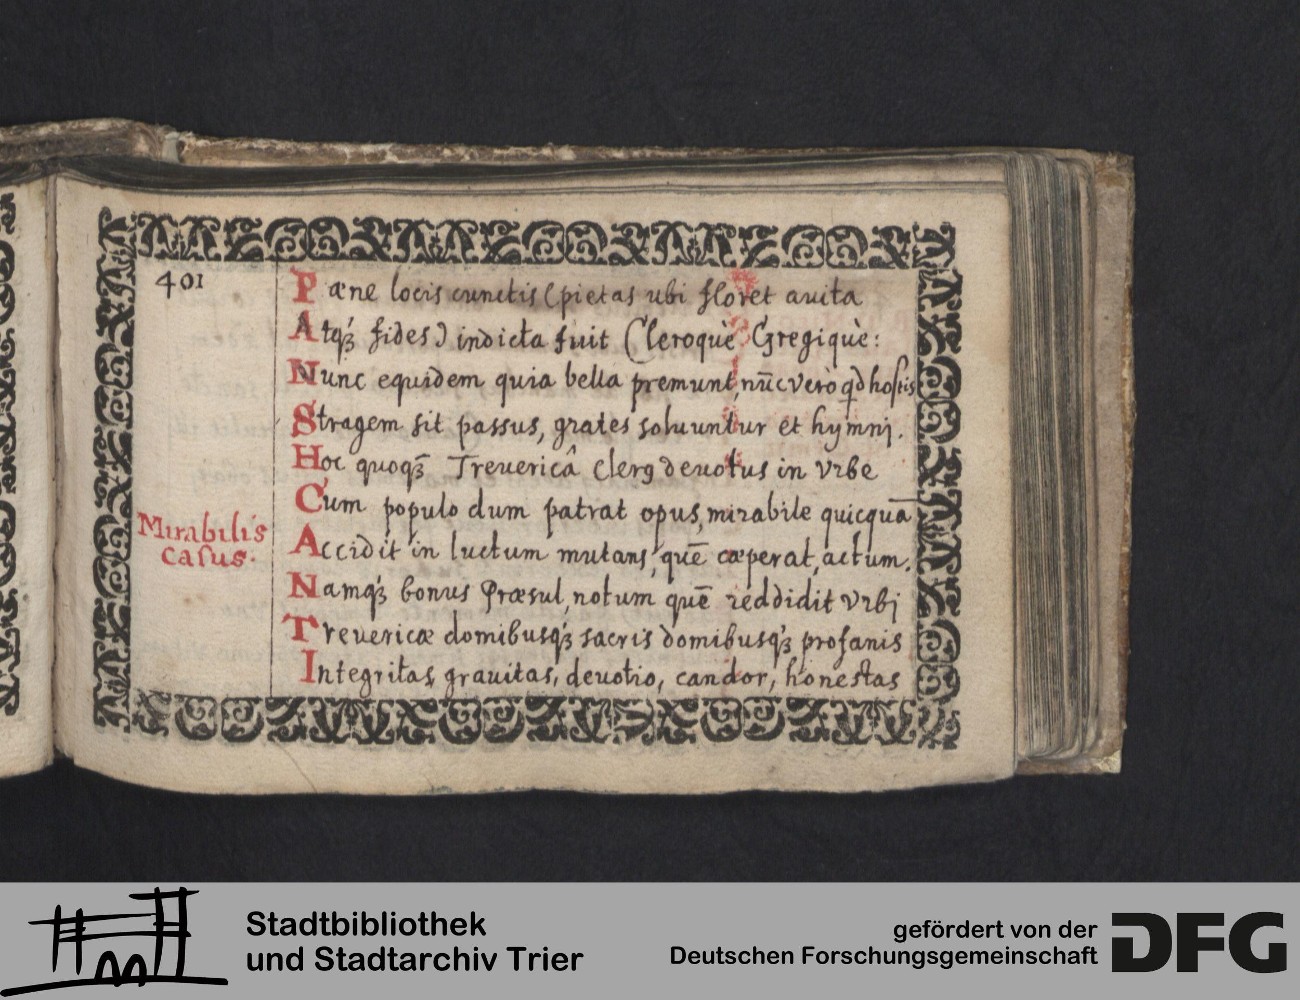 401
Pæne locis cunctis (pietas ubi floret auita
Atq́ꝫ fides) indicta fuit Cleroquè Gregiquè:
Nunc equidem quia bella premunt, nūc verò qđ hostis
Stragem sit passus, grates soluuntur et hymnj.
Hoc quoqꝫ Treuericâ Clerꝯ deuotus in vrbe
Cum populo dum patrat opus, mirabile quicquā
Mirabilis
casus.
Accidit in luctum mutans, quē cæperat, actum.
Namq́ꝫ bonus Præsul, notum quē reddidit vrbj
Treuericæ domibusq́ꝫ sacris domibusq́ꝫ profanis
Integritas, grauitas, deuotio, candor, honestas
Stadtbibliothek
und Stadtarchiv Trier
gefördert von der
Deutschen Forschungsgemeinschaft
DFG